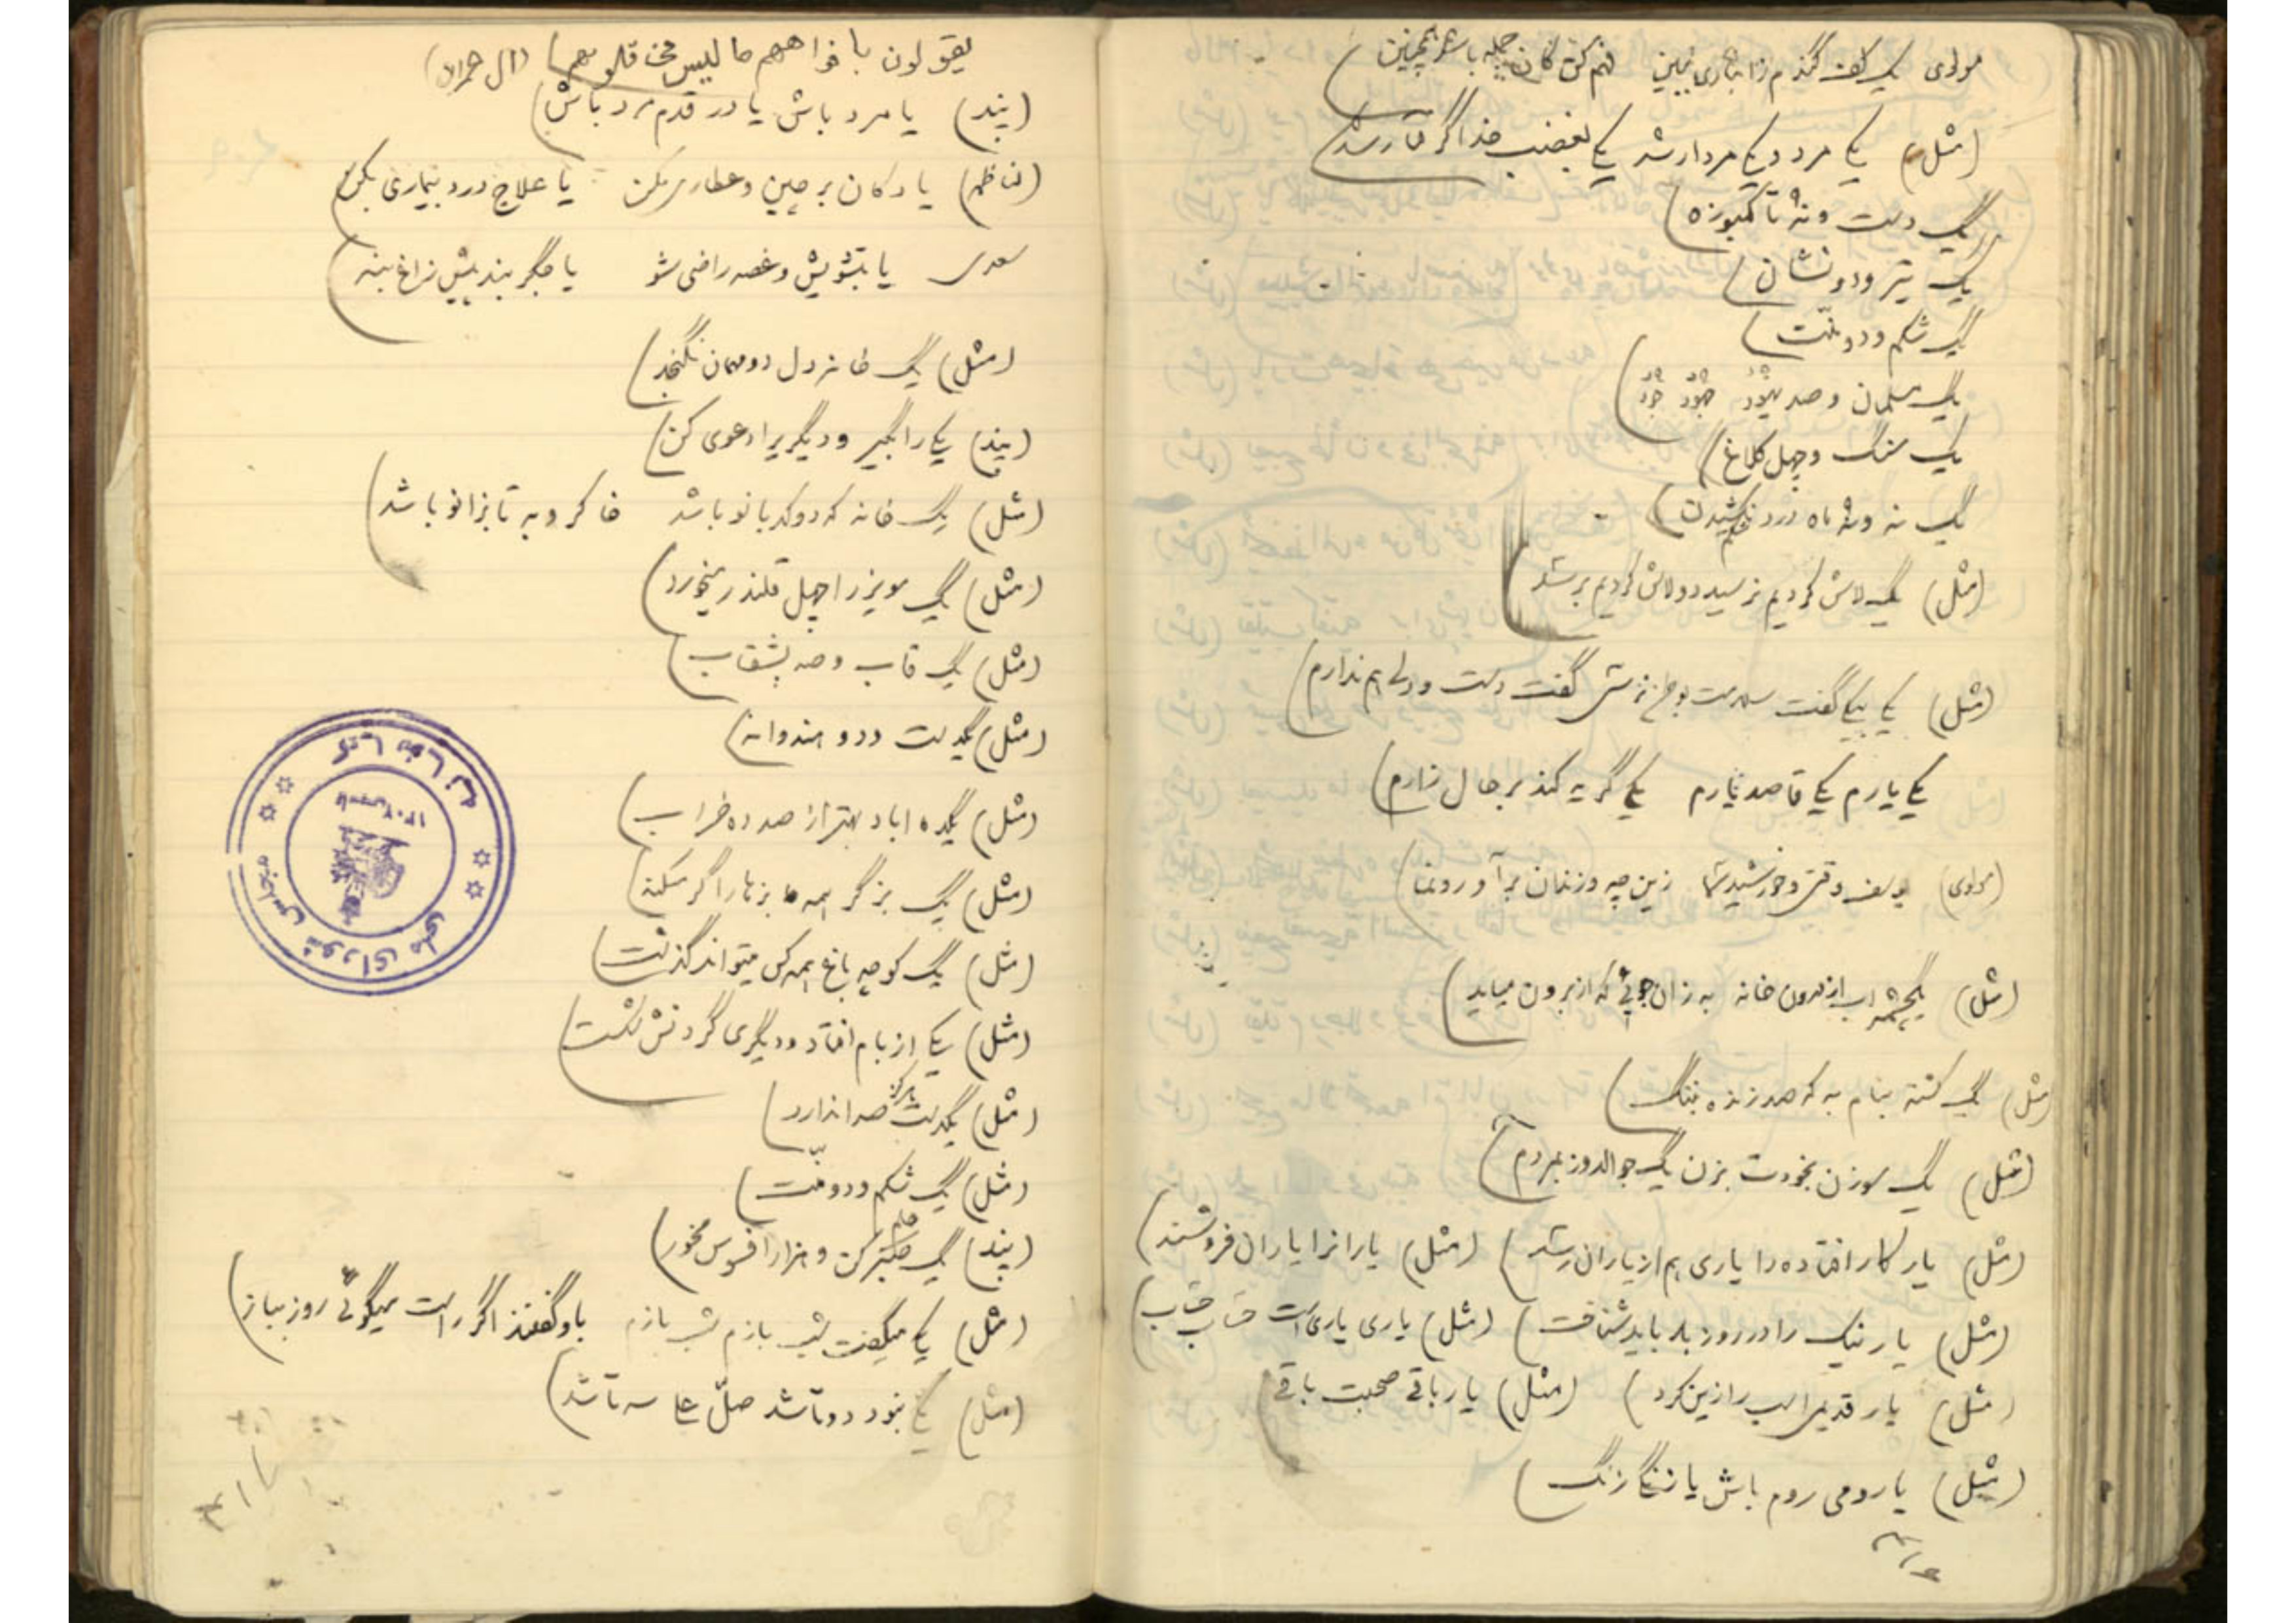 مولوی یک کف گندم ز انباری ببین فهم کن کان جمله باشد همچنین
(مثل) یکی مرد و یکی مردار شد یکی بغضب خدا گرفتار شد
یک دست و نه تا کمبوزه
یک تیر و دو نشان
یک شکم و دو منت
یک مسلمان و صد یهود جهود خود
یک سنگ و چهل کلاغ
یک نه و نه ماه درد شکم نکشیدن
(مثل) یک لاش کردیم نرسید دولاش کردیم برسد
(مثل) یکی بیکی گفت گفت دست و ولی هم ندارم
یکی یارم یکی قاصد بیارم یکی گریه کند بر حال زارم
(مولوی) یوسف وقتی و خورشید سما زین چه و زندان برآ و رو نما
(مثل) یکچشمه اب از درون خانه به زان جوئی که از برون میاید
(مثل) یک کشته بنام به که صد زنده بننگ
(مثل) یک سوزن بخودت بزن یک جوالدوز بمردم
(مثل) یار کار افتاده را یاری هم از یاران رسد (مثل) یارانرا یاران فروشند
(مثل) یار نیک را در روز بد باید شناخت (مثل) یاری یاری است حساب حساب
(مثل) یار قدیم اسب را زین کرد (مثل) یار باقی صحبت باقی
(مثل) یا رومی روم باش یا زنگی زنگ
یقولون بافواههم ما لیس فی قلوبهم (ال عمران)
(پند) یا مرد باش یا در قدم مرد باش
(ناظم) یا دکان برچین و عطاری مکن یا علاج درد بیماری بکن
سعدی یا بتشویش و غصه راضی شو یا جگر بند پیش زاغ بنه
(مثل) یک خانه دل دو مهمان نگنجد
(پند) یکی را بگیر و دیگریرا دعوی کن
(مثل) یک خانه که دو کدبانو باشد خاکروبه تا بزانو باشد
(مثل) یک مویز را چهل قلندر میخورد
(مثل) یک قاب و صد بشقاب
(مثل) یکدست و دو هندوانه
(مثل) یکده اباد بهتر از صد ده خراب
(مثل) یک بز گر همه بزها را گر میکند
(مثل) یک کوچه باغ همه کس میتواند گذشت
(مثل) یکی از بام افتاد و دیگری گردنش شکست
(مثل) یکدست هرگز صدا ندارد
(مثل) یک شکم و دو منت
(پند) یک صبر کن و هزار افسوس مخور
(مثل) یکی میگفت شب بازم شب بازم باو گفتند اگر راست میگوئی روز بباز
(مثل) یکی بود دوتا شد صل علی سه تا شد
کتابخانه
مجلس شورای ملی